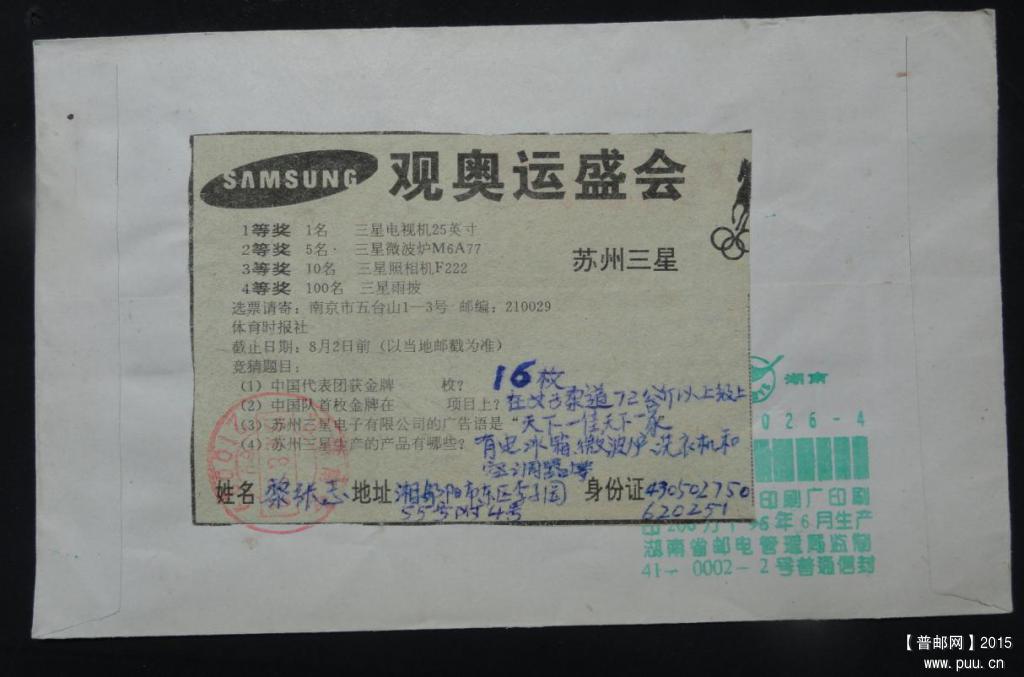 SAMSUNG 观奥运盛会
1等奖 1名 三星电视机25英寸
2等奖 5名 三星微波炉M6A77
3等奖 10名 三星照相机F222
4等奖 100名 三星雨披
苏州三星
选票请寄：南京市五台山1—3号 邮编：210029
体育时报社
截止日期：8月2日前（以当地邮戳为准）
竞猜题目：
（1）中国代表团获金牌 16 枚？ 枚
（2）中国队首枚金牌在 项目上？ 在女子柔道72公斤以上级上
（3）苏州三星电子有限公司的广告语是“天下一佳天下一家
（4）苏州三星生产的产品有哪些？ 有电冰箱、微波炉、洗衣机和
空调器等
姓名 黎 地址 湘邵阳市东区李子园 身份证 430502750
55号附4号 620251
湖南
026-4
印刷厂印刷
96年6月生产
湖南省邮电管理局监制
41- 0002-2号普通信封
【普邮网】2015
www.puu.cn